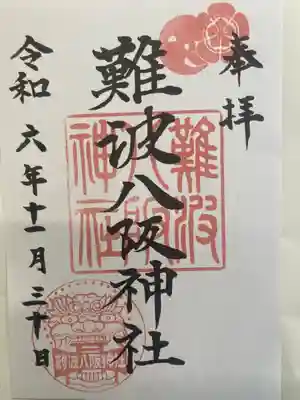 奉拝
難波八阪神社
難波
八阪
神社
令和六年十一月三十日
難波八阪神社